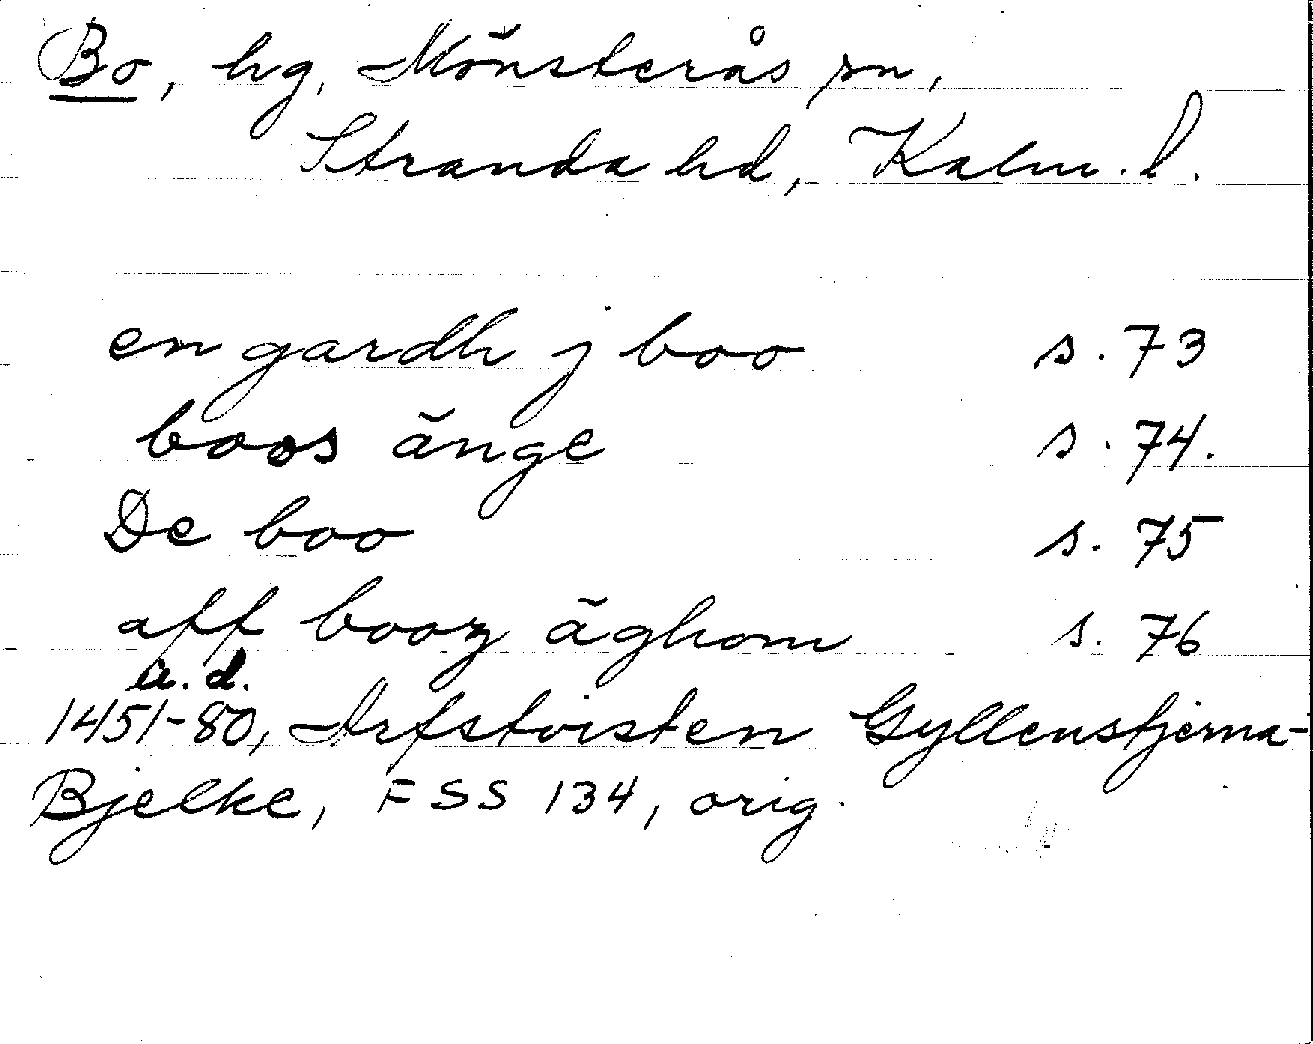 Bo, hg, Mönsterås sn,
Stranda hd, Kalm. l.
en gardh j boo s. 73
boos änge s. 74.
De boo s. 75
aff booz äghom s. 76
u. d.
1451-80, Arfstvisten Gyllenstjerna-
Bjelke, FSS 134, orig.